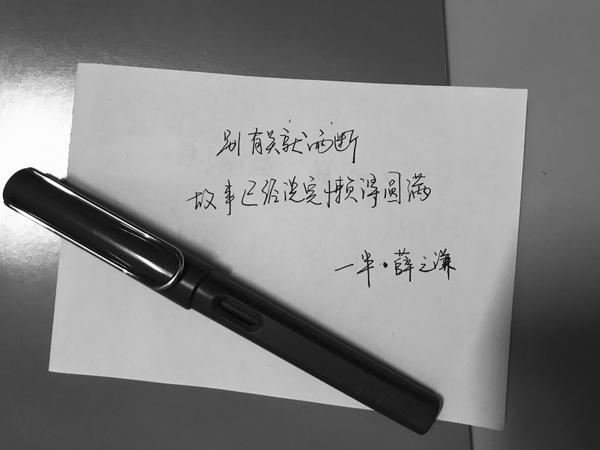 别有关就断
故事已经说完懒得圆满
一半·薛之谦